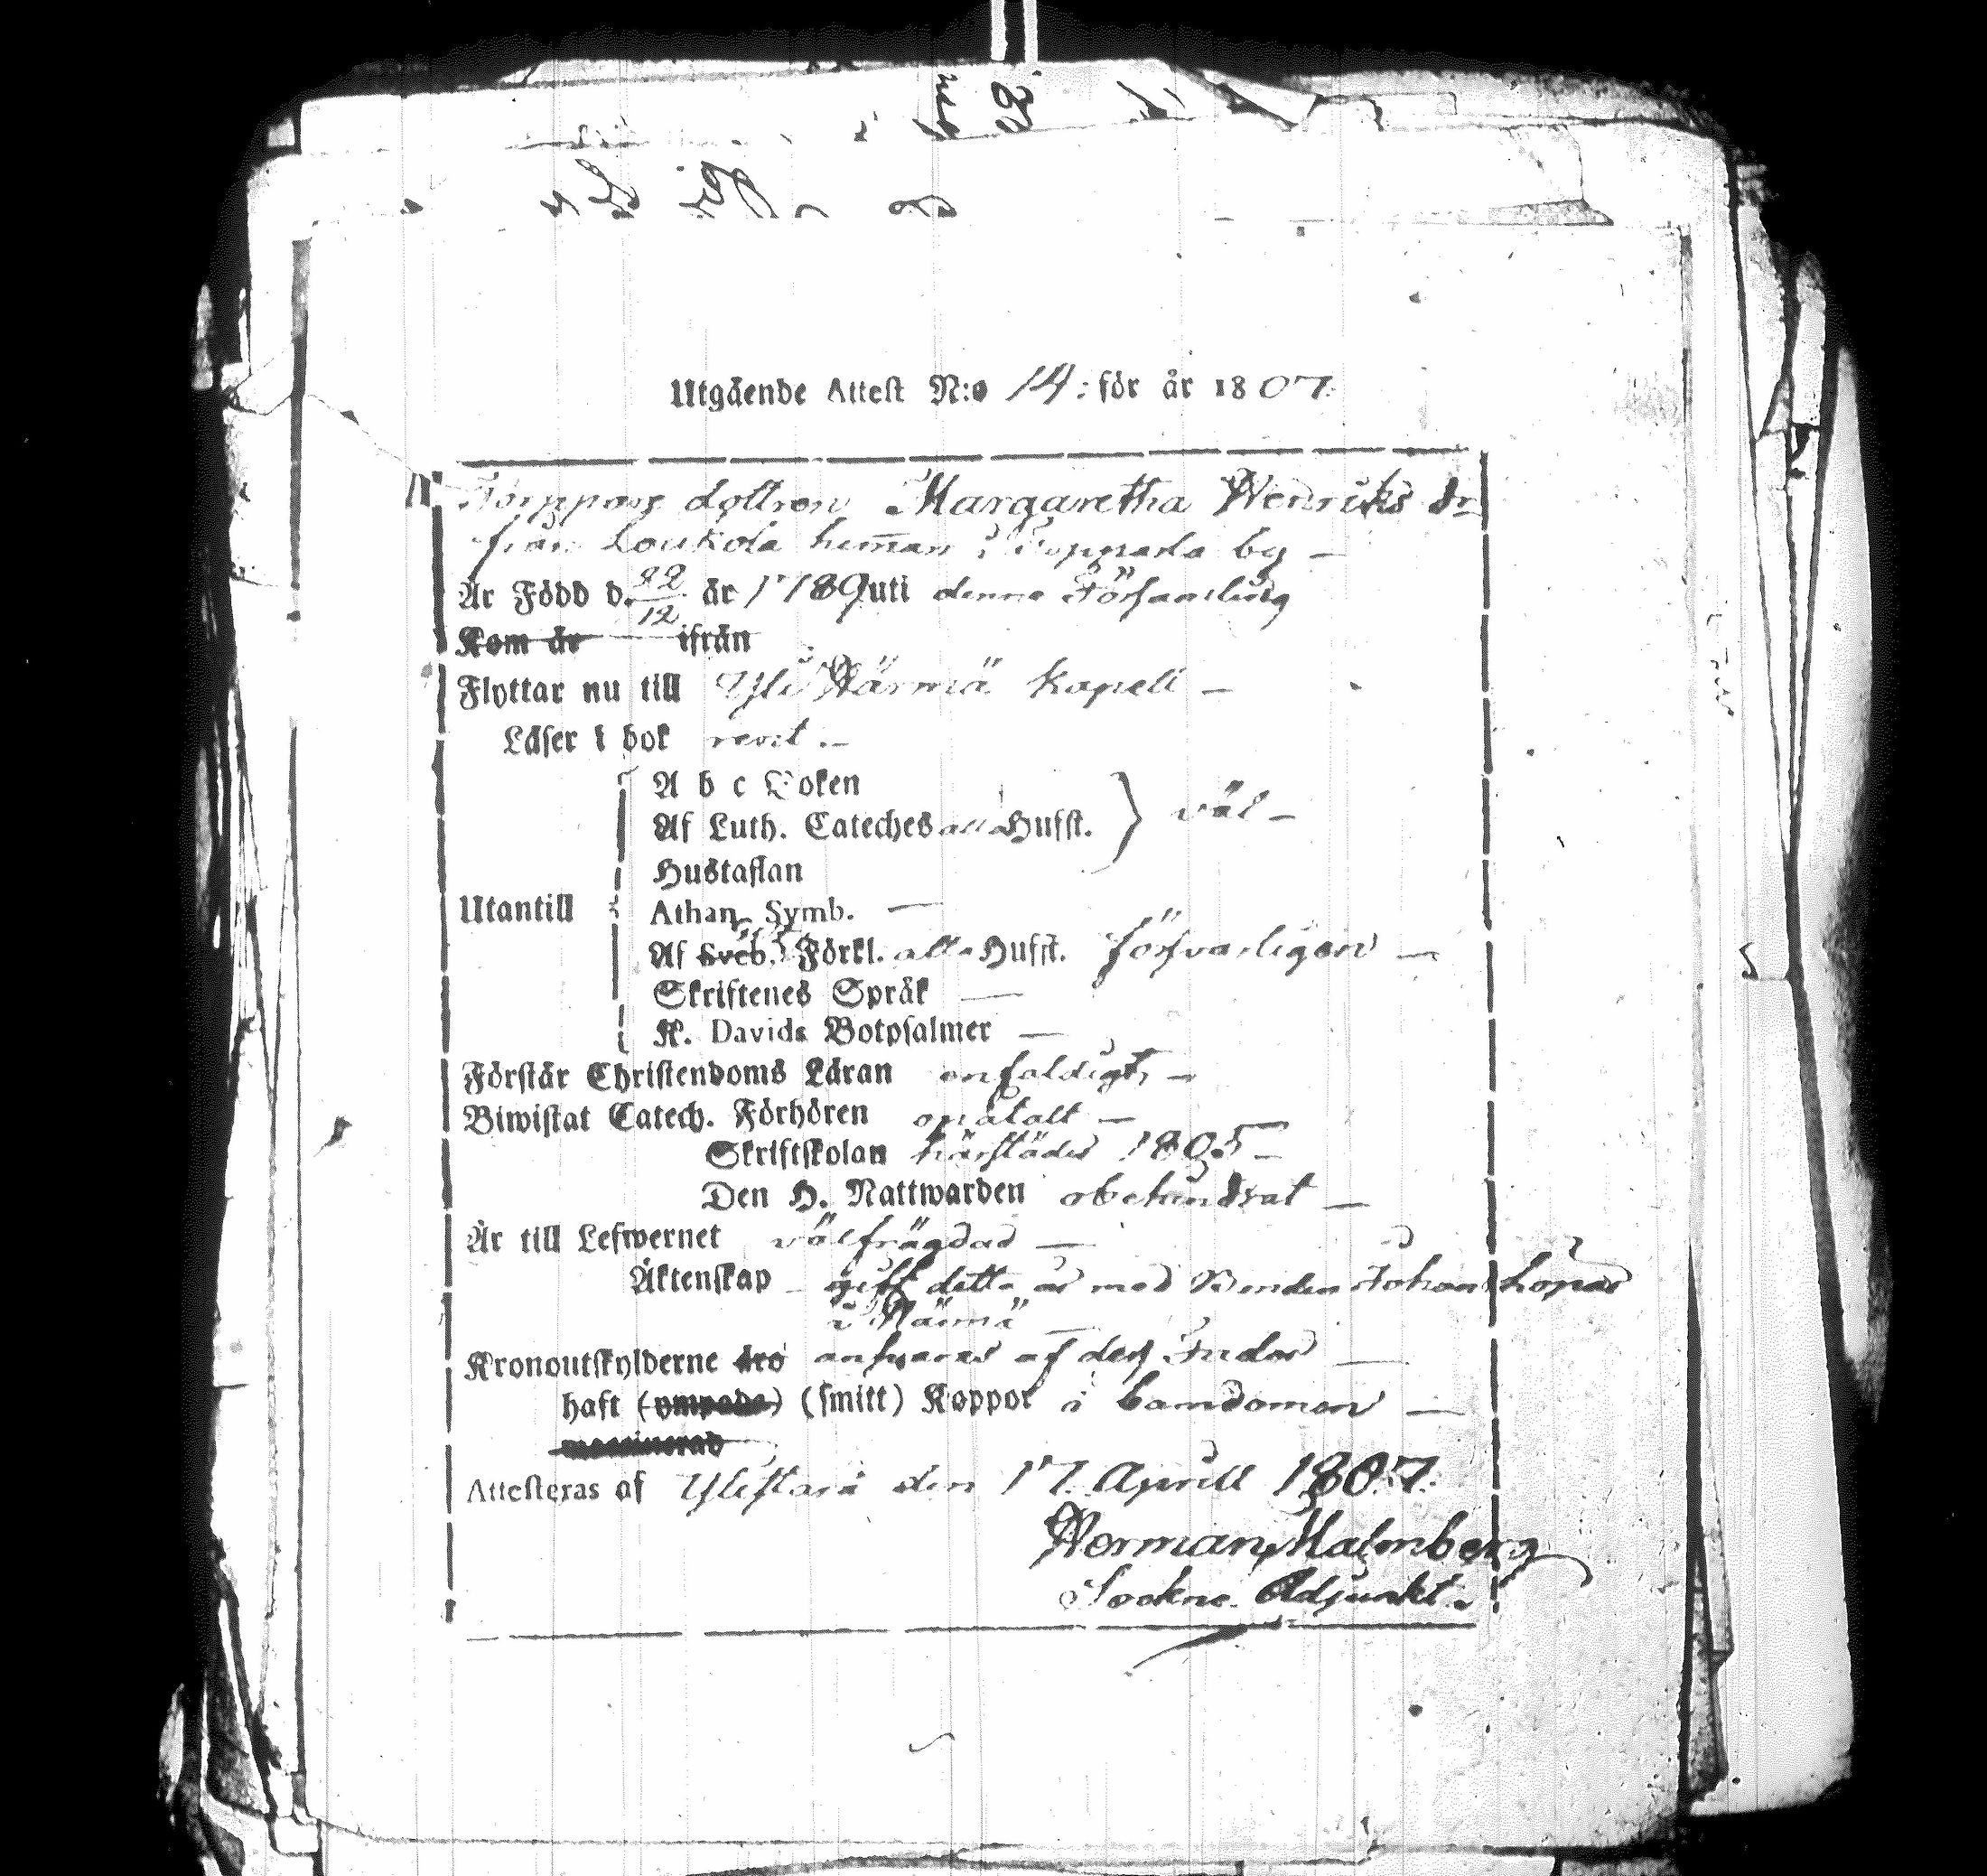 Utgående Attest N:o 14: för år 1807.
Torppare dottren Margaretha Henriks dr
från Loukola heman i Topparla by –
Är Född d. 22/12 år 1789 uti denna Församling
Kom år ifrån
Flyttar nu till Yli Härmä kapell –
Läser i bok rent. –
A b c Boken
Af Luth. Cateches alla Hufst. } väl –
Hustaflan
Utantill
Athan. Symb. —
Af Sveb. Förkl. alla Hufst. försvarligen —
Skriftenes Språk —
K. Davids Botpsalmer —
Förstår Christendoms Läran enfaldigt, –
Biwistat Catech. Förhören opåtalt –
Skriftskolan härstädes 1805 –
Den H. Nattwarden obehindrat —
Är till Lefwernet välfrägdad —
Äktenskap – gift detta år med Bonden Johan
i Härmä —
Kronoutskylderne äro ansvaras af des —
haft (ympade) (smitt) Koppor i barndomen —
vaccinerad
Attesteras af Ylistaro den 17. Aprill 1807.
Herman Malmberg
Sockne Adjunkt.